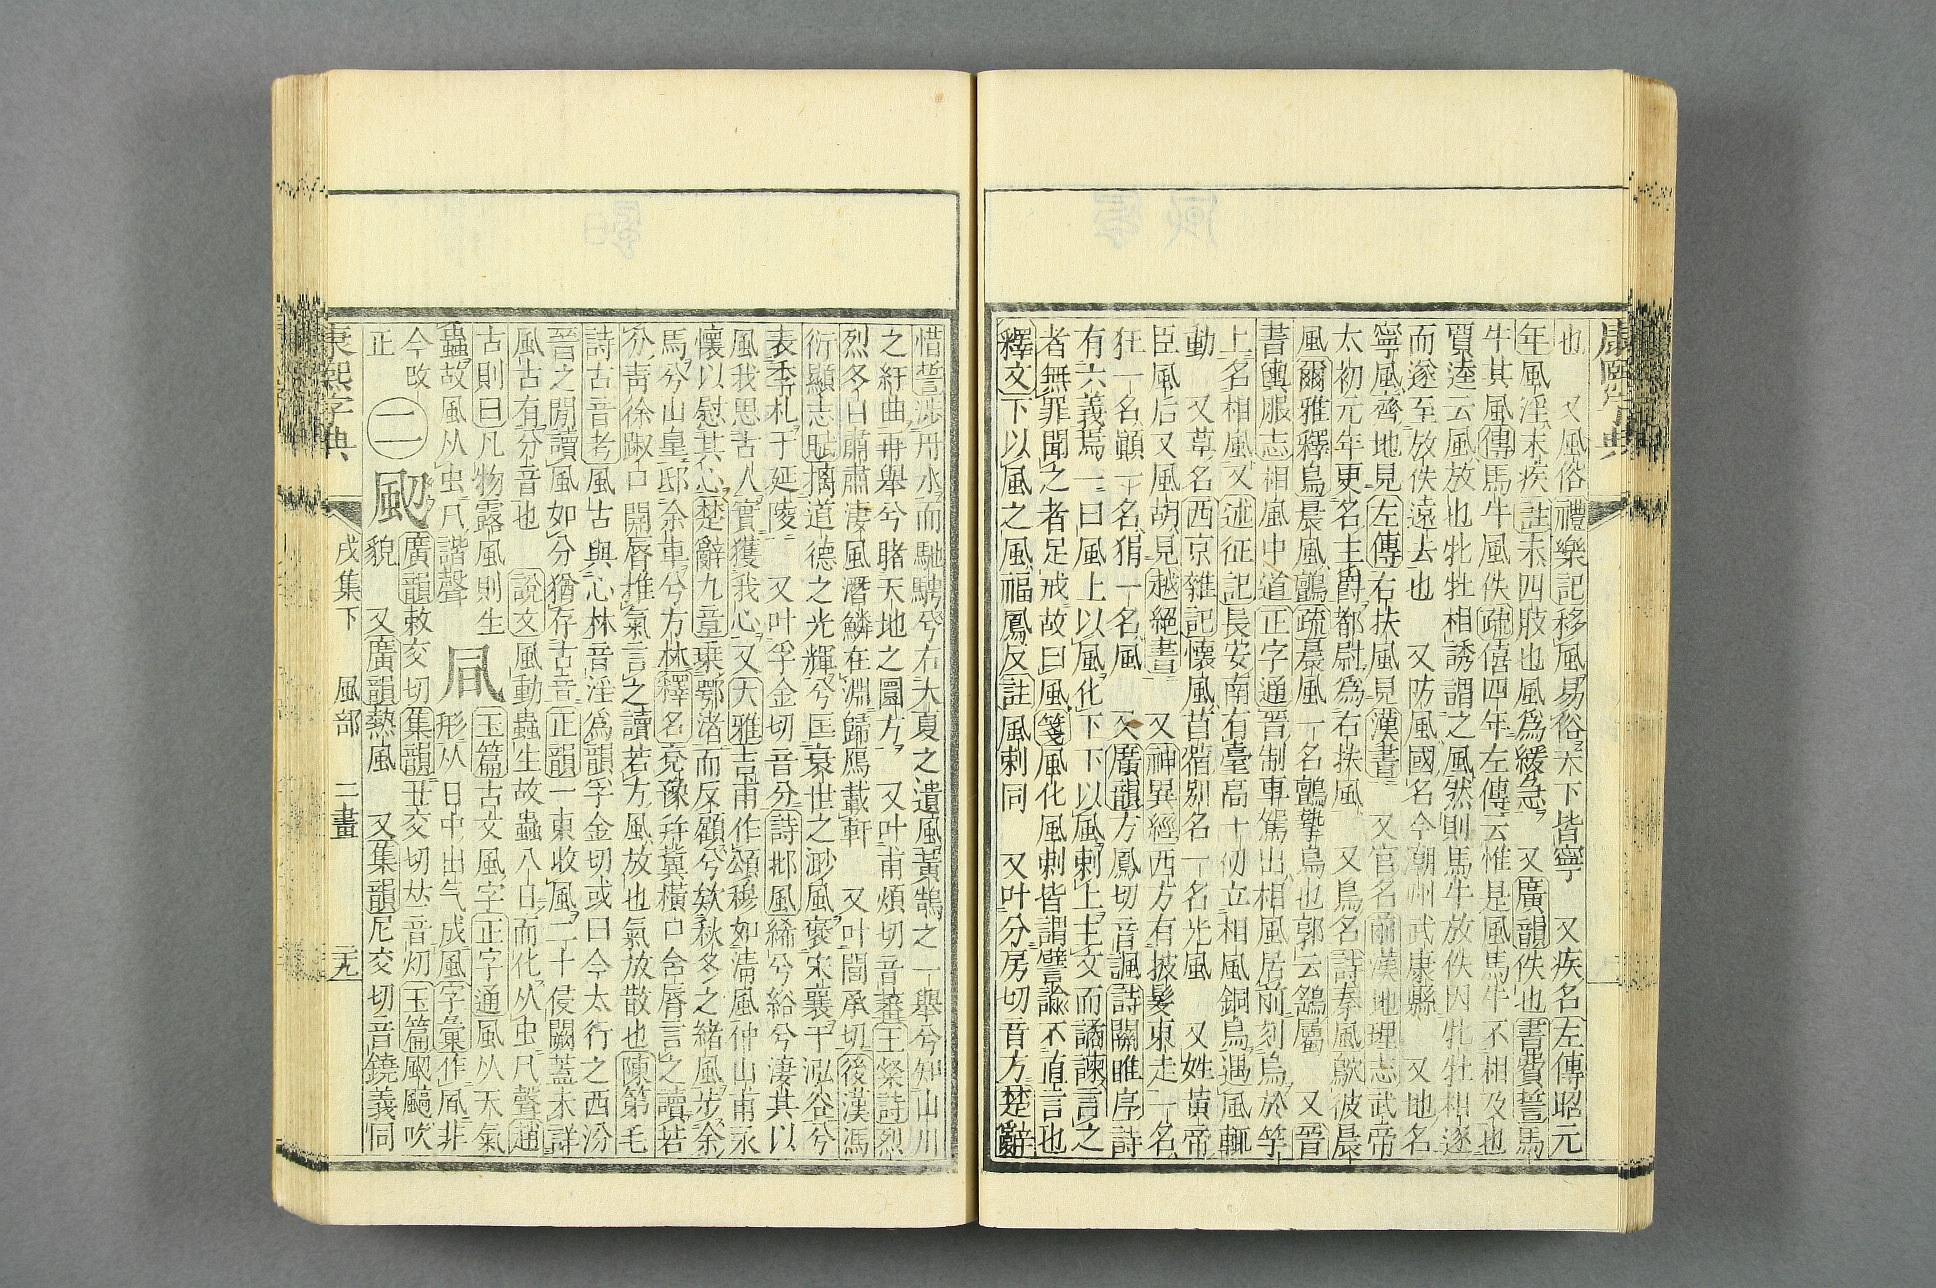 康熙字典
也　又風俗禮樂記移風易俗天下皆寧　又疾名左傳昭元
年風淫末疾註末四肢也風爲緩急　又廣韻佚也書費誓馬
牛其風傳馬牛風佚疏僖四年左傳云惟是風馬牛不相及也
賈逵云風放也牝牡相誘謂之風然則馬牛放佚因牝牡相逐
而遂至放佚遠去也　又防風國名今湖州武康縣　又地名
寧風齊地見左傳右扶風見漢書　又官名前漢地理志武帝
太初元年更名主爵都尉爲右扶風　又鳥名詩秦風鴥彼晨
風爾雅釋鳥晨風鸇疏晨風一名鸇摯鳥也郭云鷂屬　又晉
書輿服志相風中道正字通晉制車駕出相風居前刻烏於竿
上名相風又述征記長安南有臺高十仞立相風銅烏遇風輒
動　又草名西京雜記懷風苜蓿別名一名光風　又姓黃帝
臣風后又風胡見越絕書　又神異經西方有披髮東走一名
狂一名顚一名狷一名風　又廣韻方鳳切音諷詩關雎序詩
有六義焉一曰風上以風化下下以風刺上主文而譎諫言之
者無罪聞之者足戒故曰風箋風化風刺皆謂譬諭不直言也
釋文下以風之風福鳳反註風刺同　又叶分房切音方楚辭
惜誓涉丹水而馳騁兮右大夏之遺風黃鵠之一舉兮知山川
之紆曲再舉兮睹天地之圜方　又叶甫煩切音蕃王粲詩烈
烈冬日肅肅淒風潛鱗在淵歸鴈載軒　又叶閭承切後漢馮
衍顯志賦摛道德之光輝兮匡衰世之渺風褒宋襄于泓谷兮
表季札于延陵　又叶孚金切音分詩邶風絺兮綌兮淒其以
風我思古人實獲我心又大雅吉甫作頌穆如清風仲山甫永
懷以慰其心楚辭九章乗鄂渚而反顧兮欸秋冬之緒風步余
馬兮山皐邸余車兮方林釋名兗豫幷冀橫口含脣言之讀若
分靑徐踧口開脣推氣言之讀若方風放也氣放散也陳第毛
詩古音考風古與心林音淫爲韻孚金切或曰今太行之西汾
晉之閒讀風如分猶存古音正韻一東收風二十侵闕蓋未詳
風古有分音也　說文風動蟲生故蟲八日而化从虫凡聲趙
古則曰凡物露風則生　玉篇古文風字正字通風从天氣
蟲故風从虫凡諧聲　凬　形从日中出气成風字彙作凮非
今改　廣韻敕交切集韻丑交切𠀤音㓭玉篇颵颸吹
正　二　颳　貌　又廣韻熱風　又集韻尼交切音鐃義同
康熙字典　戌集下　風部　二畫　二九